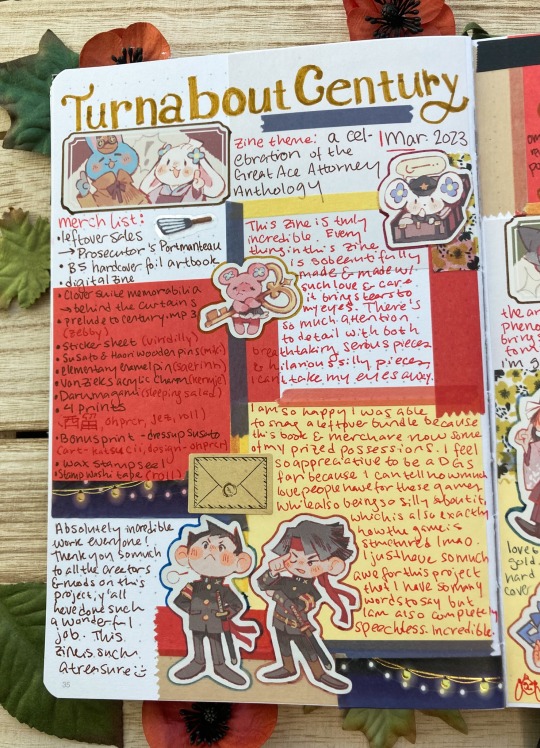 Turnabout Century
zine theme: a cel-
ebration of the
Great Ace Attorney
Anthology
1 Mar. 2023
merch list:
• leftover sales
→ Prosecutor's Portmanteau
• B5 hardcover foil artbook
• digital zine
• Clover suite memorabilia
→ behind the curtains
• prelude to century.mp3
(zebby)
• Sticker sheet (viridilly)
• Susato & Haori wooden pins
• elementary enamel pin
• Van Zieks acrylic charm
• Darumagami (sleeping salad)
• 4 prints
西留, ohprcr, jez, roll)
• Bonus print - dressup Susato
(art- katsucii, design - ohprcr)
• wax stamp seal
• Stamp washi tape (roll)
This zine is truly
incredible. Every
thing in this zine
is so beautifully
made & made w/
such love & care.
it brings tears to
my eyes. There's
so much attention
to detail with both
breathtaking serious pieces
& hilarious silly pieces,
I can't take my eyes away.
I am so happy I was able
to snag a leftover bundle because
this book & merch are now some
of my prized possessions. I feel
so appreciative to be a DGS
fan because I can tell how much
love people have for these games
while also being so silly about it,
which is also exactly
how the game is
structured lmao
I just have so much
awe for this project
that I have so many
words to say but
I am also completely
speechless. Incredible.
Absolutely incredible
work everyone!
Thank you so much
to all the creators
& mods on this
project, y'all
have done such
a wonderful
job. This
zine is such
a treasure
35